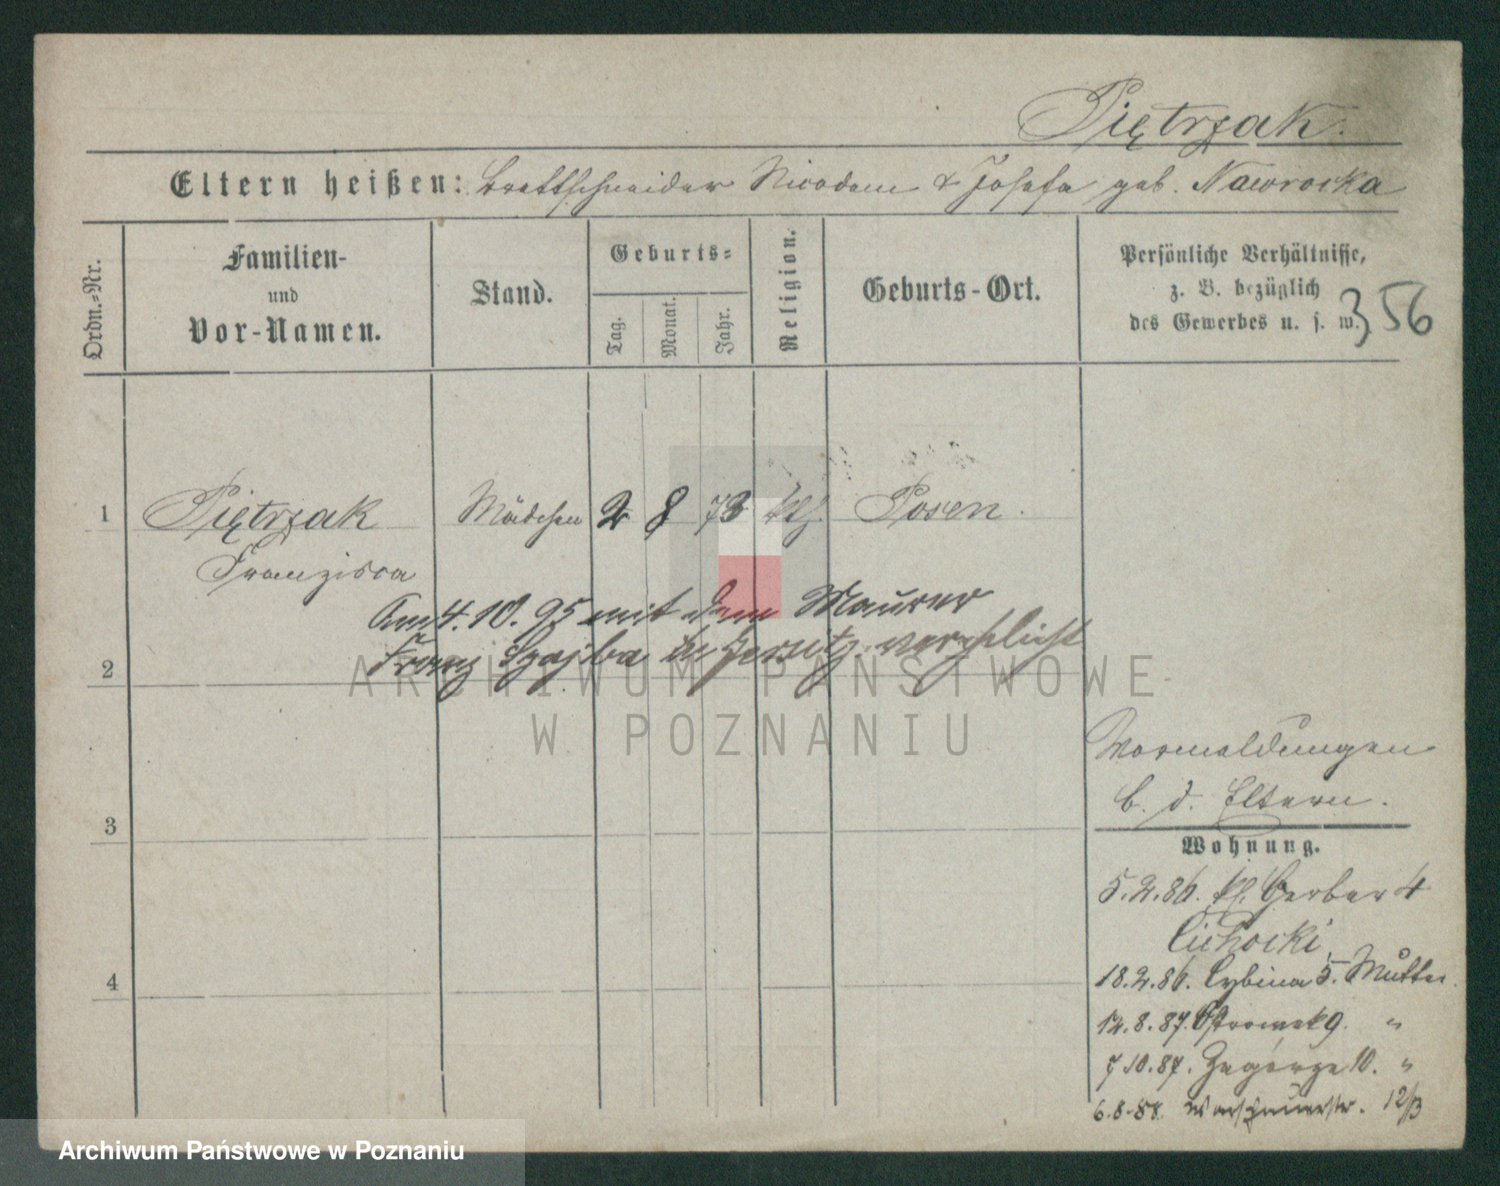 Piętrzak.
Eltern heißen: Brettschneider Nicodem & Josefa geb. Nawrocka
Ordn.-Nr.
Familien-
und
Vor-Namen.
Stand.
Geburts-
Tag.
Monat.
Jahr.
Religion.
Geburts-Ort.
Persönliche Verhältnisse,
z. B. bezüglich
des Gewerbes u. s. w.
356
1
Piętrzak
Franzisca
Mädchen
2
8
73
kth.
Posen.
Am 4.10.95 mit dem Maurer
Franz in Jersitz verehlicht
2
3
4
Vormeldungen
b. d. Eltern.
Wohnung.
5.2.86. kl. Gerber 4
Cichocki,
18.2.86. Cybina 5. Mutter
14.8.87. Ostrowek 9. "
7 10.87. Zagórze 10. "
6.8.88. Warschauerstr. 12/13
ARCHIWUM PAŃSTWOWE
W POZNANIU
Archiwum Państwowe w Poznaniu